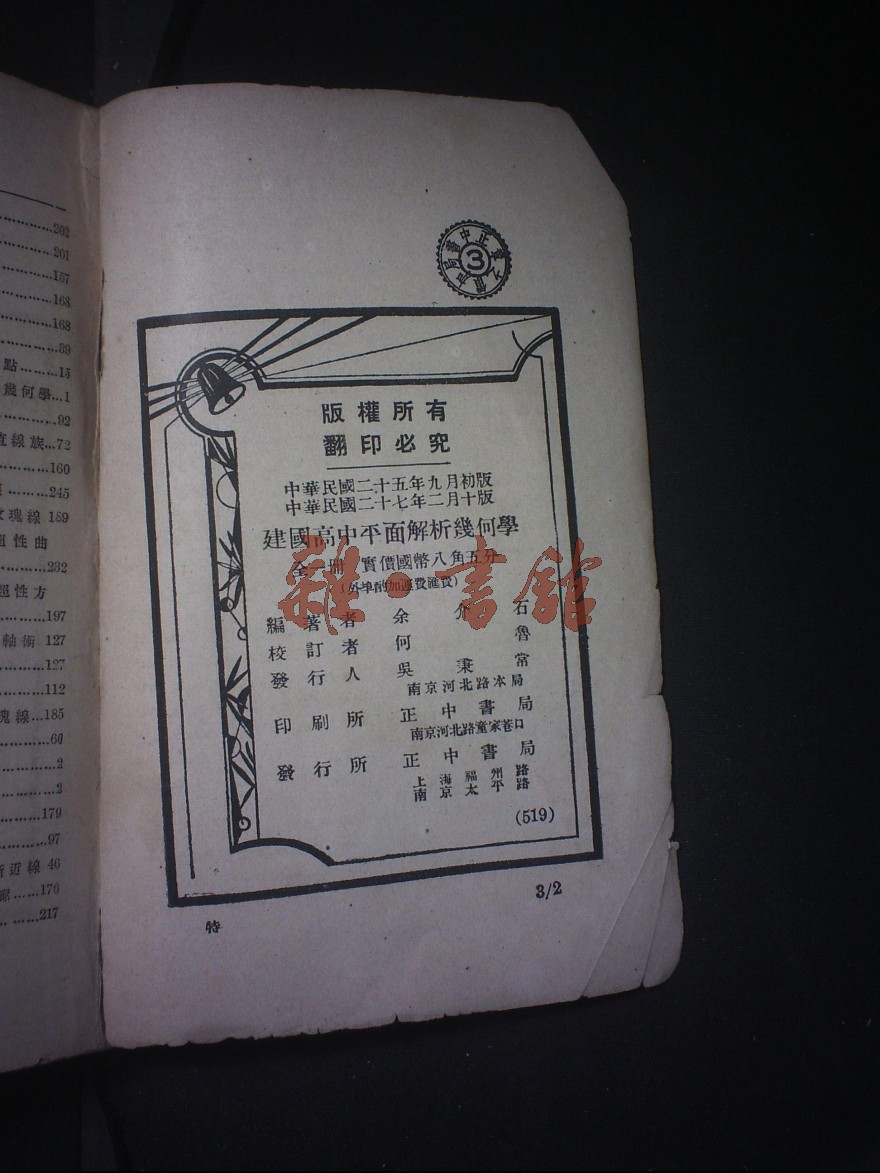 202
201
157
168
168
89
點 15
幾何學 1
92
直線族 72
160
245
玫瑰線 189
性曲
232
性方
197
軸術 127
127
112
瑰線 185
60
2
2
179
97
近線 46
176
217
正中書局
3
版權所有
翻印必究
中華民國二十五年九月初版
中華民國二十七年二月十版
建國高中平面解析幾何學
全一冊 實價國幣八角五分
(外埠酌加運費匯費)
編著者 余介石
校訂者 何魯
發行人 吳秉常
南京河北路本局
印刷所 正中書局
南京河北路童家巷口
發行所 正中書局
上海福州路
南京太平路
(519)
3/2
特
雜·書館